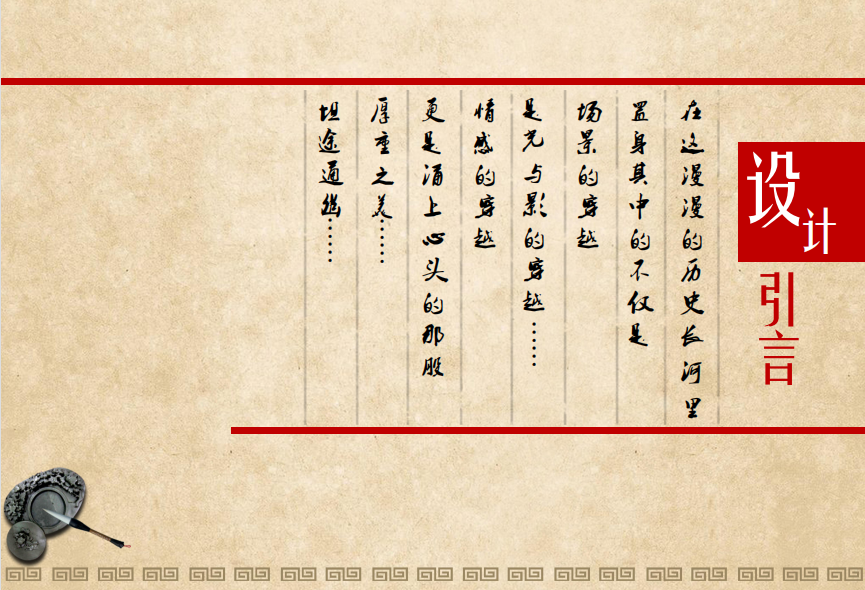 设计
引言
在这漫漫的历史长河里
置身其中的不仅是
场景的穿越
是光与影的穿越……
情感的穿越
更是涌上心头的那股
厚重之美……
坦途通幽……